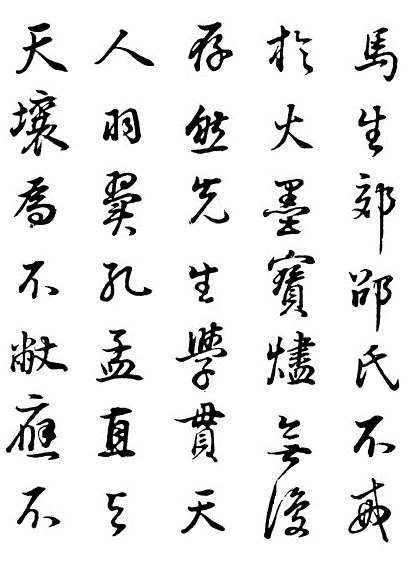 馬生郊邵氏不戒
於火墨寳燼無復
存然先生學貫天
人羽翼孔孟直与
天壤為不敝應不